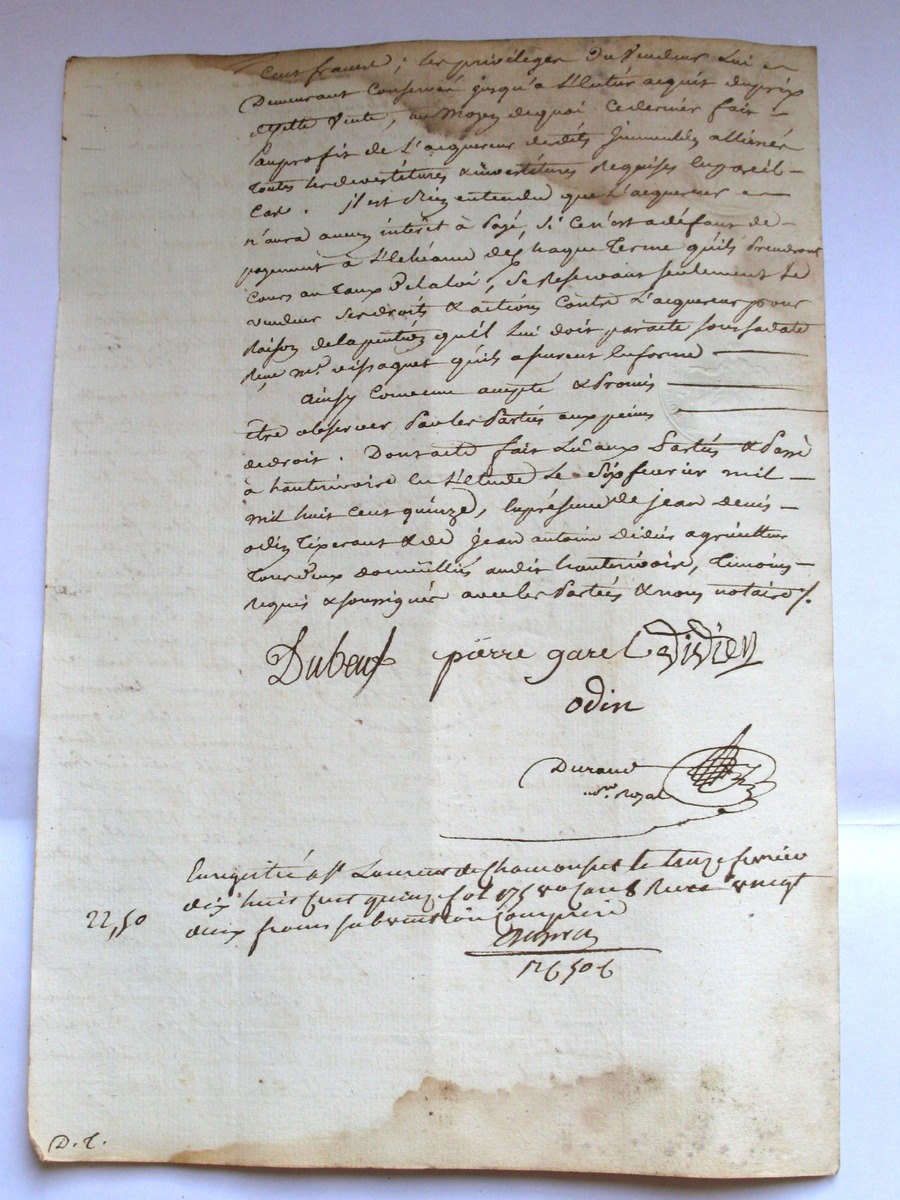 Cent francs ; les privilèges du Vendeur lui
Demeurant Conservés jusqu'a L'entier acquit duprix
dejette Vente, au Moyen dequoi Cedernier fait
Sauprofit de L'acquereur desdits Jmmeubles alliénés
toutes lesdevestitures & investitures Requises enpareil
Cas . jl est Bien entendu que L'acquereur
n'aura aucun intérêt à Payé, Si Cen'est adéfaut de
payement à L'echéance de Chaque Terme qu'ils Prendront
Cours au Taux De laloi, Se Reservant seulement Le
vendeur Ses droits & actions Contre L'acquereur pour
Raison dela qu'il Lui doit, paracte Sous Sadate
Reçu me. vissaguet qu'ils assurent enforme
Ainsy Convenu accepté & Promis
être observer Par les Parties aux peines
dedroit . Dont acte fait Lû aux Parties & Passé
à hauterivoire En L'etude Le Six fevrier mil
mil huit Cent quinze, En présence de jean denis
odin Tixerant & de jean antoine Didier agriculteur
Tous deux domicilliés audit hauterivoire, Témoins
Requis & Soussignés avec les Parties & nous notaire /.
Dubeuf pierre garel Didier
odin
Durand
nore Royal
Enregistré a St Laurent de Chamousset le treze fevrier
dix huit Cent quinze fol 175 vo Case 8 Recu vingt
deux francs subvention Comprise
22,50
D. T.